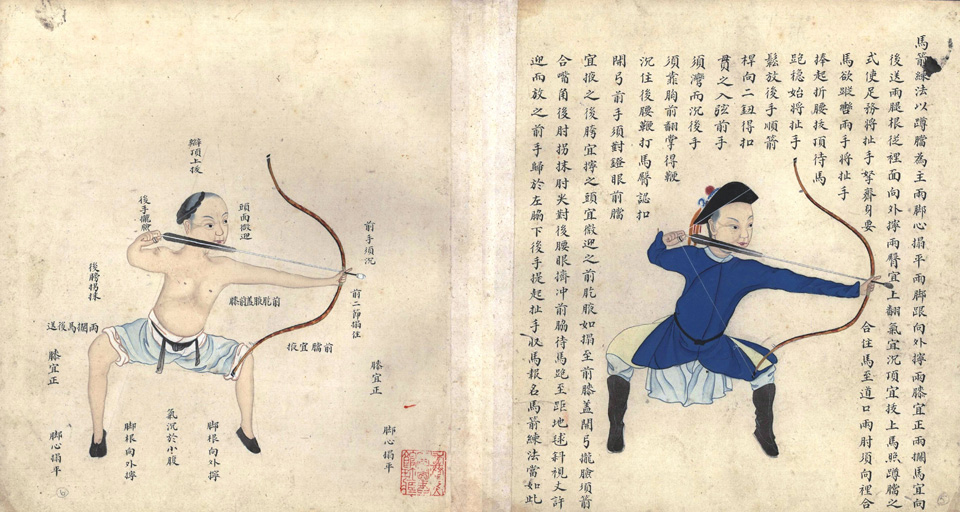 馬箭練法以蹲臕為主兩脚心搨平兩脚跟向外擰兩膝宜正兩擱馬宜向
後送兩腿根從裡面向外擰兩臂宜上翻氣宜沉頂宜拔上馬照蹲臕之
式使足務將扯手拏齊身要 合住馬至道口兩肘須向裡合
馬欲蹤轡兩手將扯手
捧起折腰拔頂待馬
跑穩始將扯手
鬆放後手順箭
桿向二鈕得扣
貫之入弦前手
須灣而沉後手
須靠胸前翻掌得鞭
沉住後腰鞭打馬臀認扣
開弓前手須對鐙眼前臕
宜掖之後胯宜擰之頭宜微迎之前腋如搨至前膝蓋開弓攏臉項箭
合嘴角後肘拐抹肘尖對後腰眼擠冲前脇待馬跑至距地毬斜視丈許
迎而放之前手歸於左脇下後手提起扯手収馬報名馬箭練法當如此
前手須沉
前二節搨住
膝宜正
脚心搨平
頭面微迎
前腋蓋前膝
前臕宜掖
辮頂上拔
後手攏臉
後膀拐抹
兩擱馬後送
膝宜正
脚根向外擰
氣沉於小腹
脚根向外擰
脚心搨平